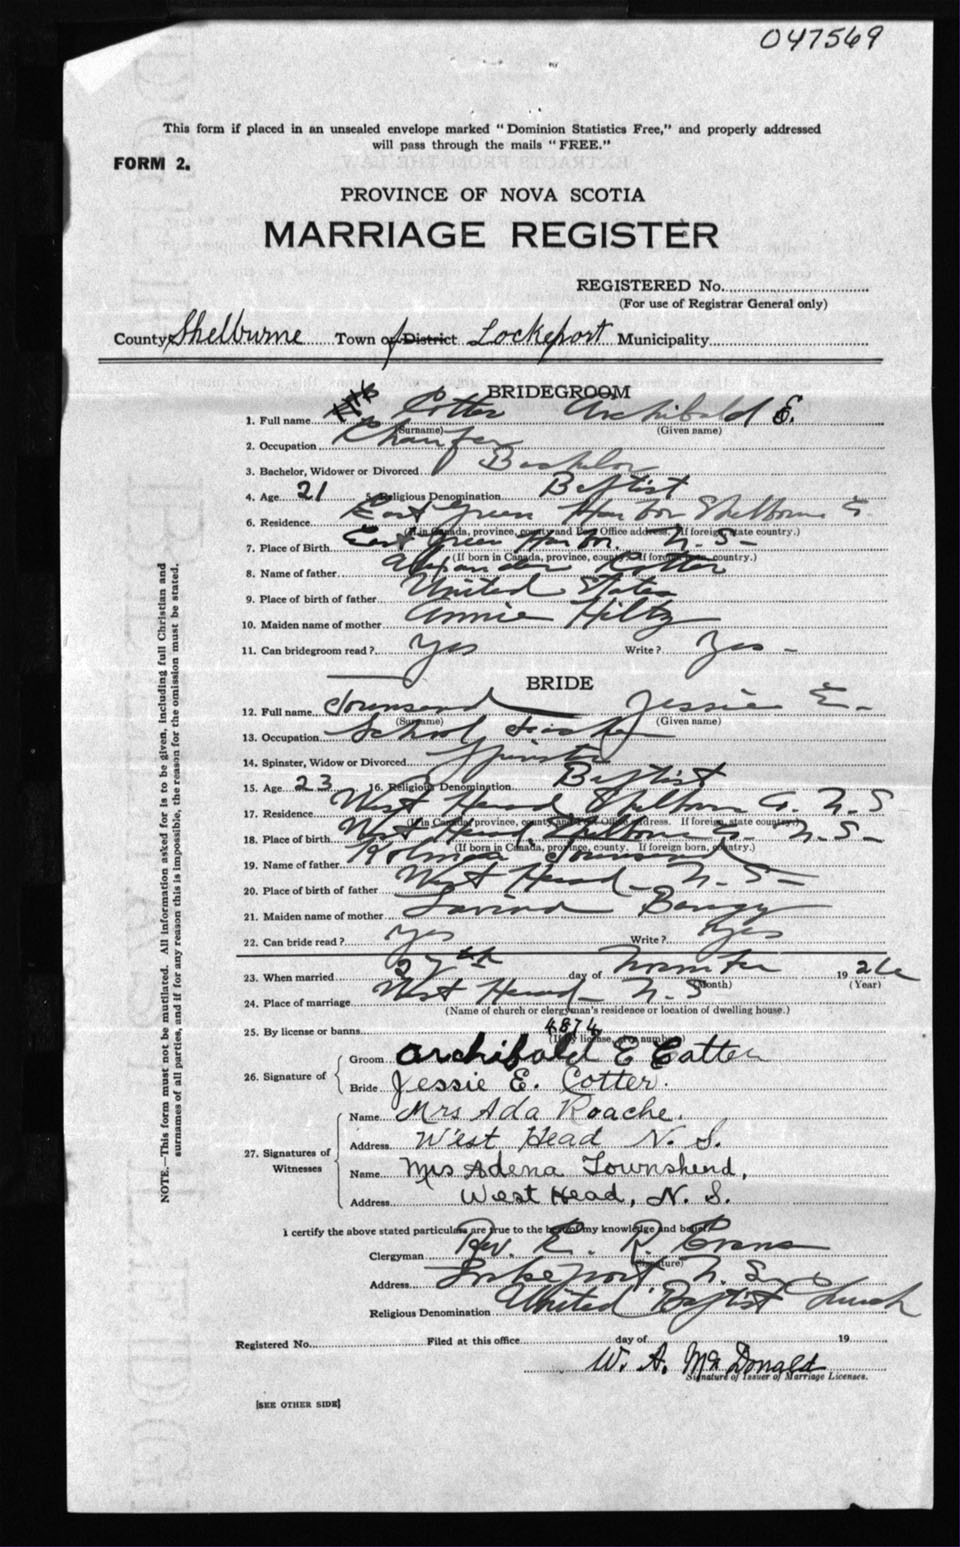 047569
This form if placed in an unsealed envelope marked "Dominion Statistics Free," and properly addressed
will pass through the mails "FREE."
FORM 2.
PROVINCE OF NOVA SCOTIA
MARRIAGE REGISTER
REGISTERED No.
(For use of Registrar General only)
County Shelburne Town of District Lockeport Municipality
BRIDEGROOM
1. Full name Cotter Archibald E.
(Surname) (Given name)
2. Occupation Chaufer
3. Bachelor, Widower or Divorced Bachelor
4. Age 21 5. Religious Denomination Baptist
6. Residence East Green Harbor Shelburne Co.
(If in Canada, province, county and Post Office address. If foreign, state country.)
7. Place of Birth East Green Harbor N. S.
(If born in Canada, province, county. If foreign, country.)
8. Name of father Alexander Cotter
9. Place of birth of father United States
10. Maiden name of mother Annie Hiltz
11. Can bridegroom read? Yes Write? Yes
BRIDE
12. Full name Townsend Jessie E.
(Surname) (Given name)
13. Occupation School Teacher
14. Spinster, Widow or Divorced Spinster
15. Age 23 16. Religious Denomination Baptist
17. Residence West Head Shelburne Co. N. S
(If in Canada, province, county and Post Office address. If foreign, state country.)
18. Place of birth West Head Shelburne Co. N. S.
(If born in Canada, province, county. If foreign born, country.)
19. Name of father Townsend
20. Place of birth of father West Head N. S.
21. Maiden name of mother
22. Can bride read? Yes Write? Yes
23. When married 27th day of November 1926
(Month) (Year)
24. Place of marriage West Head N. S
(Name of church or clergyman's residence or location of dwelling house.)
25. By license or banns 4874
(If by license, give number)
26. Signature of
Groom Archibald E Cotter
Bride Jessie E. Cotter.
27. Signatures of Witnesses
Name Mrs Ada Roache.
Address West Head N. S.
Name Mrs Adena Townshend,
Address West Head, N. S.
I certify the above stated particulars are true to the best of my knowledge and belief.
Clergyman Rev. E. R. Evans
(Signature)
Address Lockeport N. S.
Religious Denomination United Baptist Church
Registered No. Filed at this office day of 19
W. A. McDonald
Signature of Issuer of Marriage Licenses.
[SEE OTHER SIDE]
NOTE.—This form must not be mutilated. All information asked for is to be given, including full Christian and
surnames of all parties, and if for any reason this is impossible, the reason for the omission must be stated.